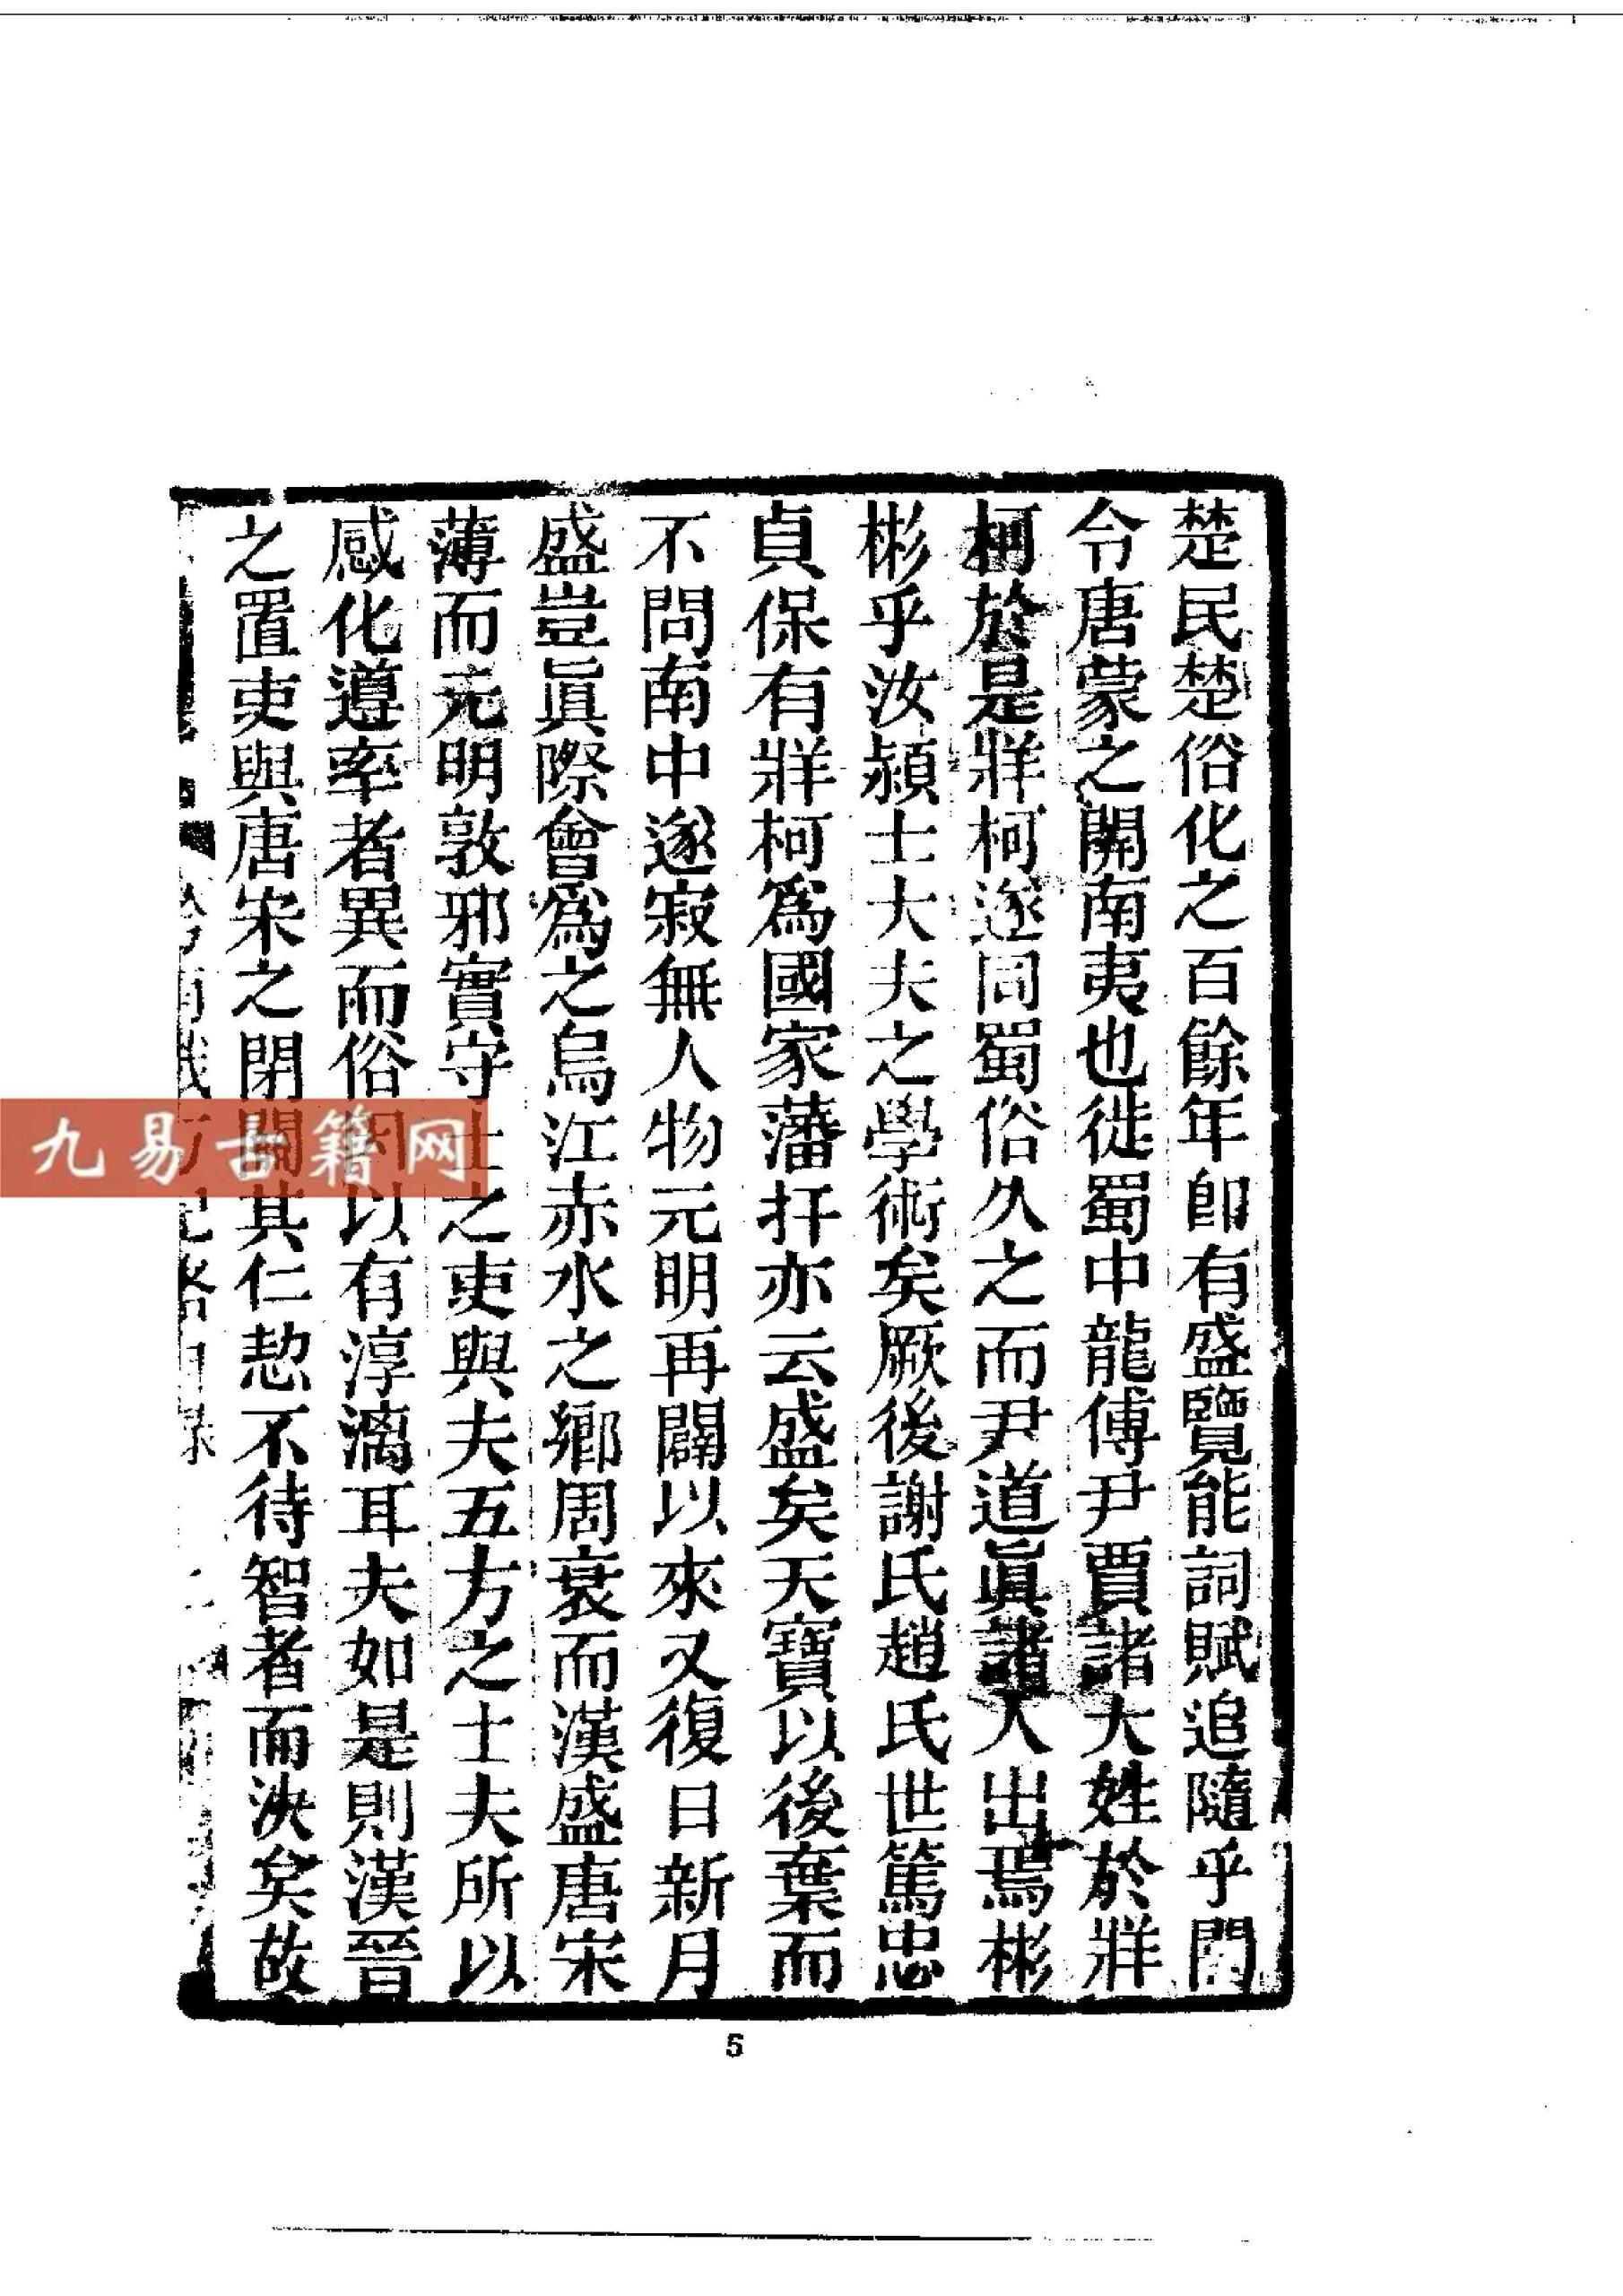 楚民楚俗化之百餘年卽有盛覽能詞賦追隨乎閒
令唐蒙之開南夷也徙蜀中龍傅尹賈諸大姓於牂
柯於是牂柯遂同蜀俗久之而尹道眞諸人出焉彬
彬乎汝潁士大夫之學術矣厥後謝氏趙氏世篤忠
貞保有牂柯爲國家藩扞亦云盛矣天寶以後棄而
不問南中遂寂無人物元明再闢以來又復日新月
盛豈眞際會爲之烏江赤水之鄉周衰而漢盛唐宋
薄而元明敦邪實守土之吏與夫五方之士夫所以
感化遵率者異而俗因以有淳漓耳夫如是則漢晉
之置吏與唐宋之閉關其仁恝不待智者而決矣故
九易古籍网
5